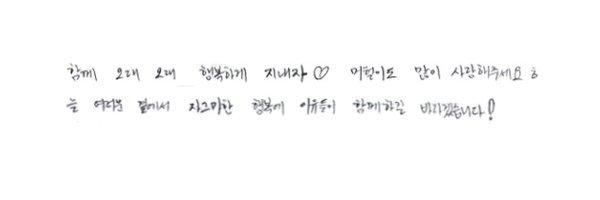 함께 오래 오래 행복하게 지내자♡ 머털이도 많이 사랑해주세요 ㅎ
늘 여러분 곁에서 자그마한 행복에 이유들이 함께하길 바라겠습니다!